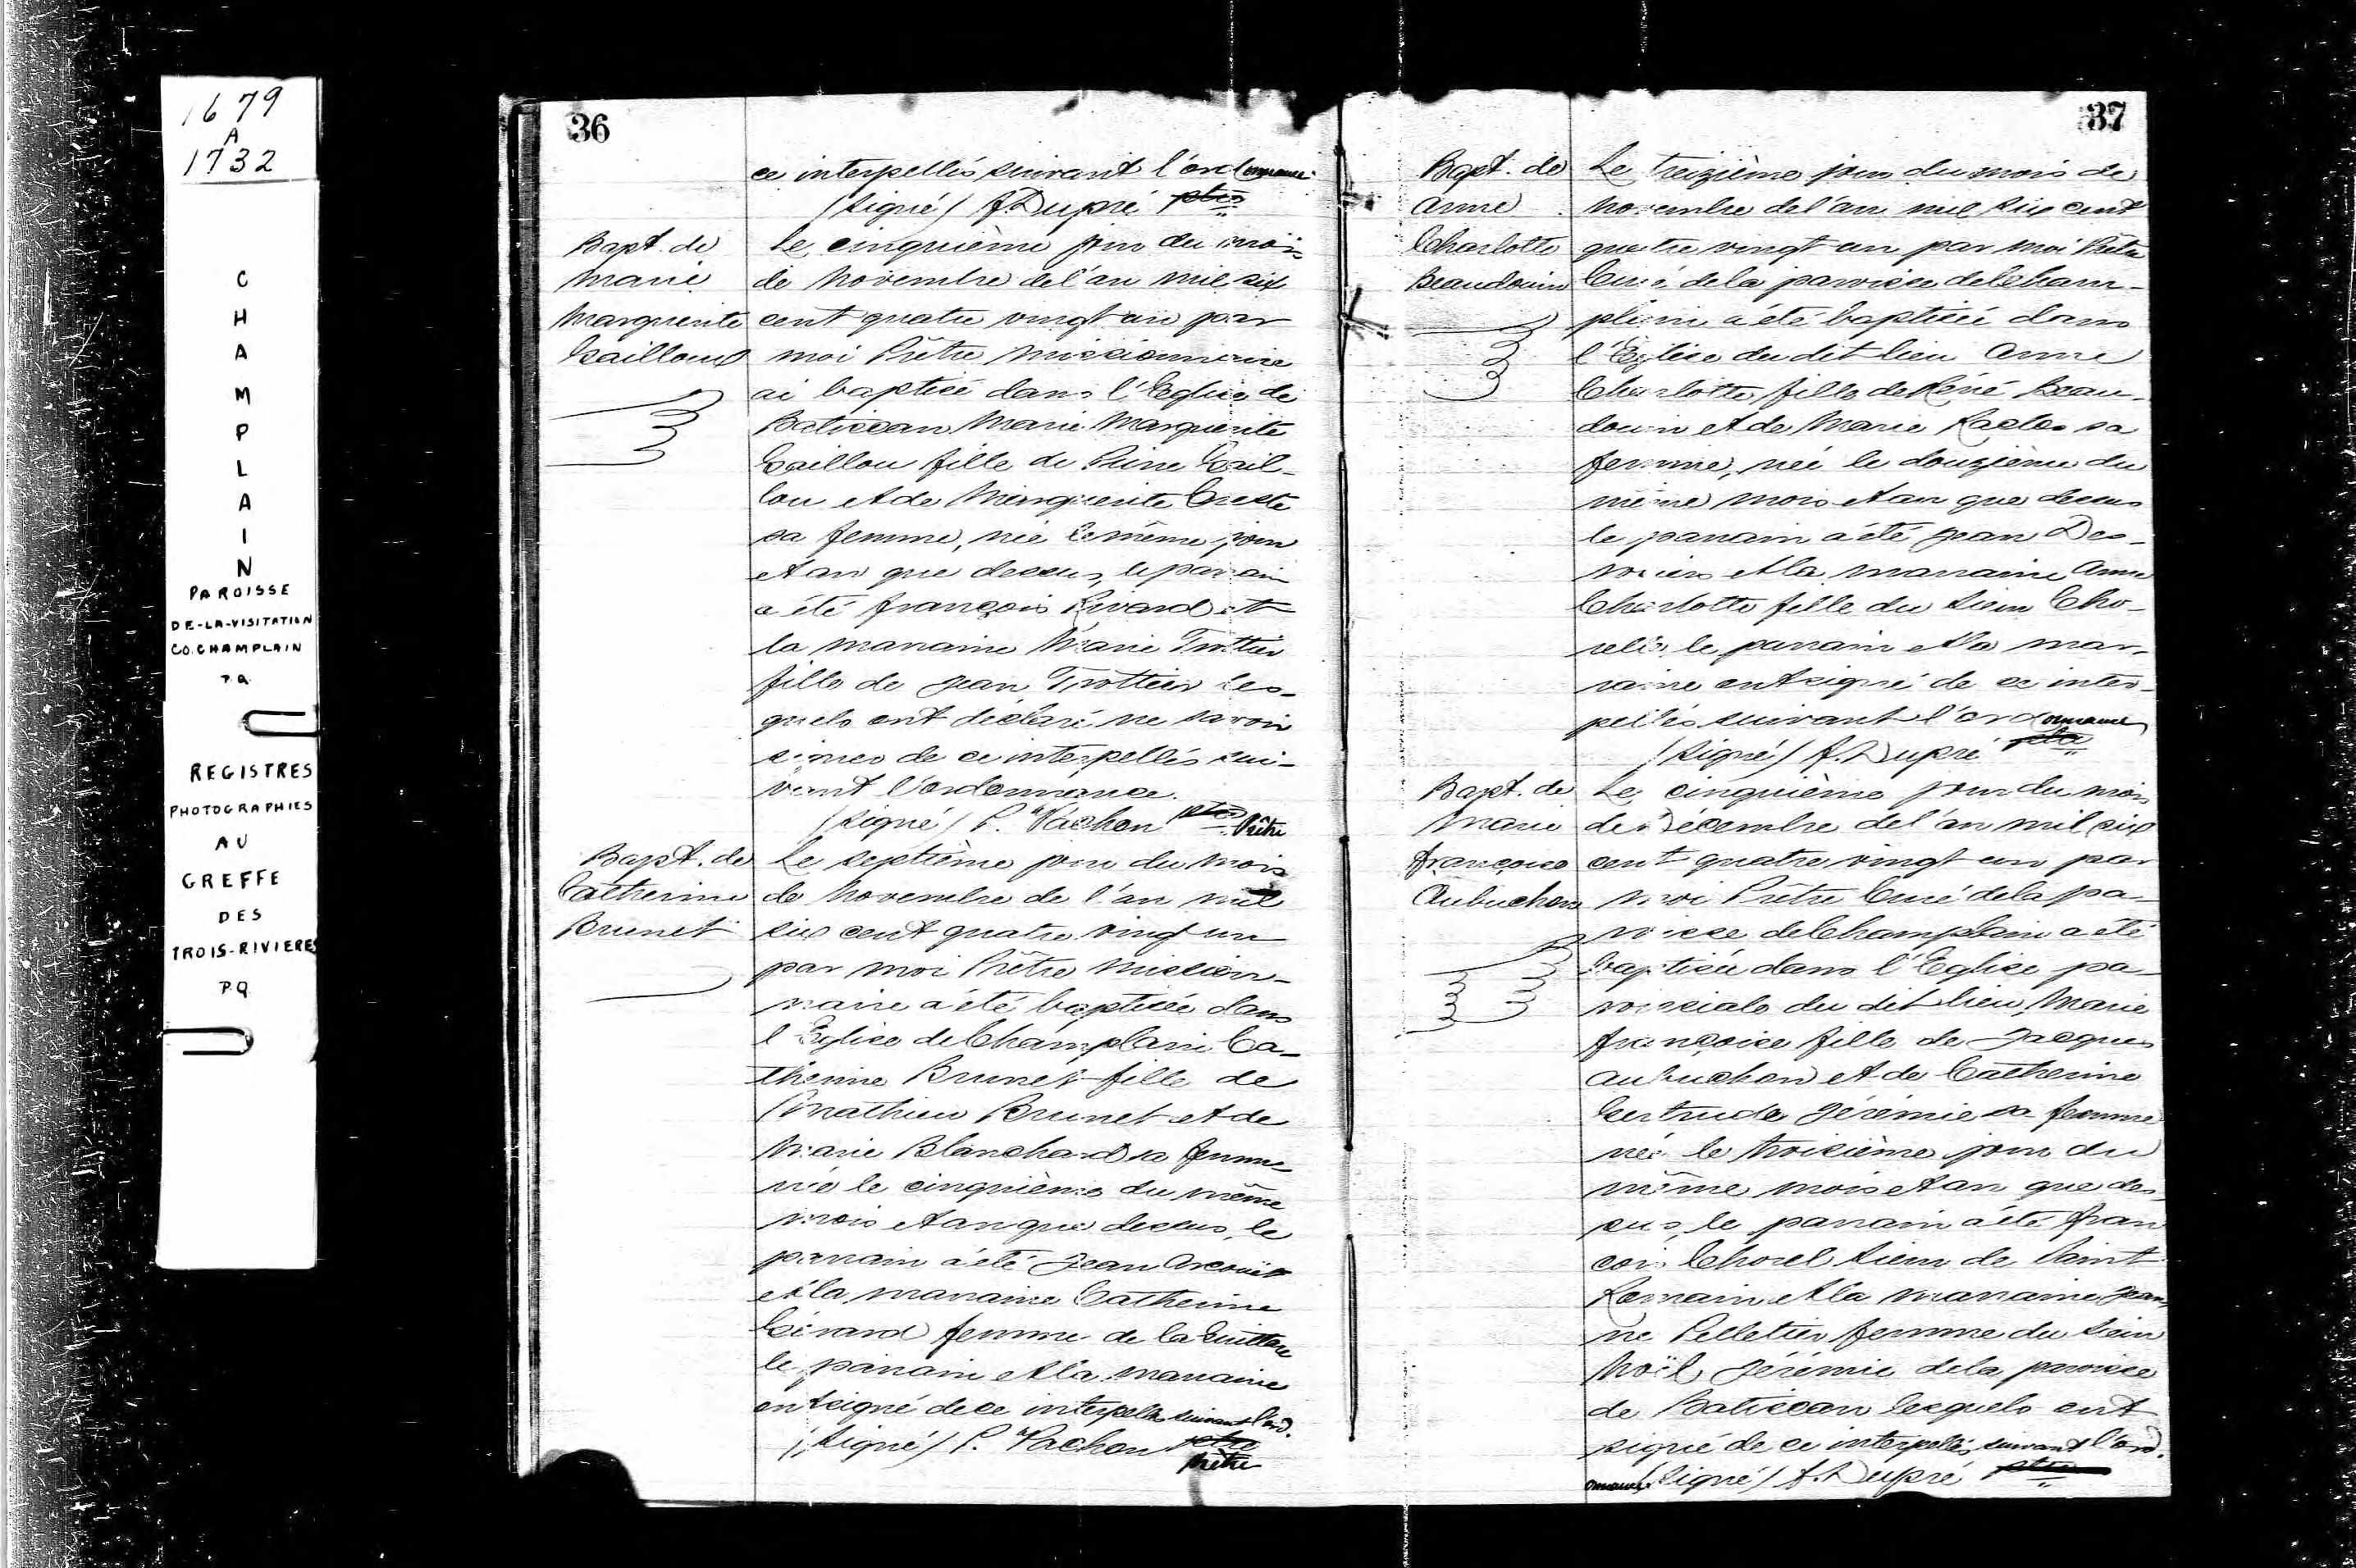 1679
A
1732
CHAMPLAIN
PAROISSE
DE-LA-VISITATION
CO. CHAMPLAIN
P.Q.
REGISTRES
PHOTOGRAPHIES
AU
GREFFE
DES
TROIS-RIVIERES
P.Q
36
ce interpellés suivant l'ordonnance
(signé) F. Dupré ptre
Bapt. de
Marie
Marguerite
Gailloux
Le cinquième jour du mois
de Novembre de l'an mil six
cent quatre vingt un par
moi Prêtre Missionnaire
ai baptisé dans l'Eglise de
Batiscan Marie Marguerite
Gaillou fille de Pierre Gail-
lou et de Marguerite Creste
sa femme, née le même jour
et an que dessus, le parrain
a été François Rivard et
la marraine Marie Trottier
fille de Jean Trottier les-
quels ont déclaré ne savoir
signer de ce interpellés sui-
vant l'ordonnance.
(signé) P. Vachon ptre Prêtre
Bapt. de
Catherine
Brunet
Le septième jour du mois
de Novembre de l'an mil
six cent quatre vingt un
par moi Prêtre Mission-
naire a été baptisée dans
l'Eglise de Champlain Ca-
therine Brunet fille de
Mathieu Brunet et de
Marie Blanchard sa femme
née le cinquième du même
mois et an que dessus, le
parrain a été Jean Arcouet
et la marraine Catherine
Gérard femme de la
le parrain et la marraine
ont signé de ce interpellés suivant l'ord.
(signé) P. Vachon ptre
Prêtre
37
Bapt. de
Anne
Charlotte
Beaudouin
Le treizième jour du mois de
Novembre de l'an mil six cent
quatre vingt un par moi Prêtre
Curé de la paroisse de Cham-
plain a été baptisée dans
l'Eglise du dit lieu Anne
Charlotte fille de René Beau-
douin et de Marie sa
femme, née le douzième du
même mois et an que dessus
le parrain a été Jean Des-
rosiers et la marraine Anne
Charlotte fille du Sieur Cho-
relis, le parrain et la mar-
raine ont signé de ce inter-
pellés suivant l'ordonnance
(signé) F. Dupré ptre
Bapt. de
Marie
Françoise
Aubuchon
Le cinquième jour du mois
de Décembre de l'an mil six
cent quatre vingt un par
moi Prêtre Curé de la pa-
roisse de Champlain a été
baptisée dans l'Eglise pa-
roissiale du dit lieu, Marie
Françoise fille de Jacques
Aubuchon et de Catherine
Gertrude Jérémie sa femme
née le troisième jour du
même mois et an que des-
sus, le parrain a été Fran
cois Chorel Sieur de Saint
Romain et la marraine Jean-
ne Pelletier femme du Sieur
Noël Jérémie de la paroisse
de Batiscan lesquels ont
signé de ce interpellés suivant l'ord.
onnance (signé) F. Dupré ptre